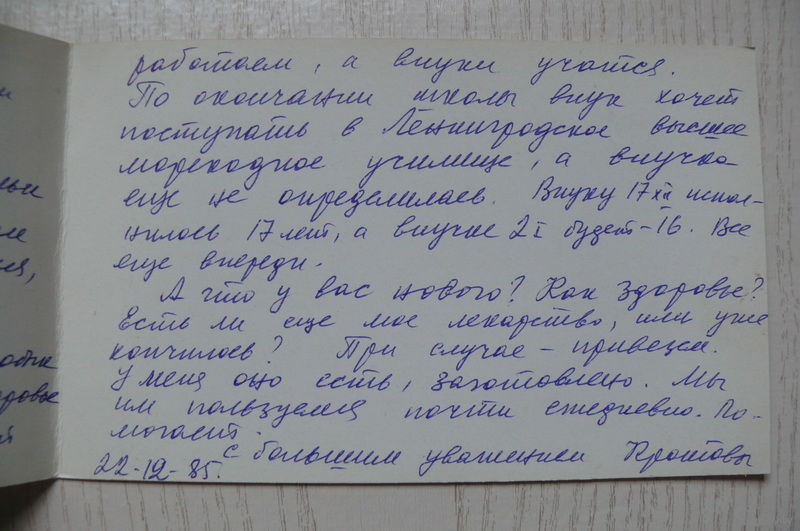 работаем, а внуки учатся.
По окончании школы внук хочет
поступать в Ленинградское высшее
мореходное училище, а внучка
еще не определилась. Внуку 17 XII испол-
нилось 17 лет, а внучке 2 I будет - 16. Все
еще впереди.
А что у вас нового? Как здоровье?
Есть ли еще мое лекарство, или уже
кончилось? При случае - привезем.
У меня оно есть, заготовлено. Мы
им пользуемся почти ежедневно. По-
могает.
с большим уважением Кротовы
22-12-85.